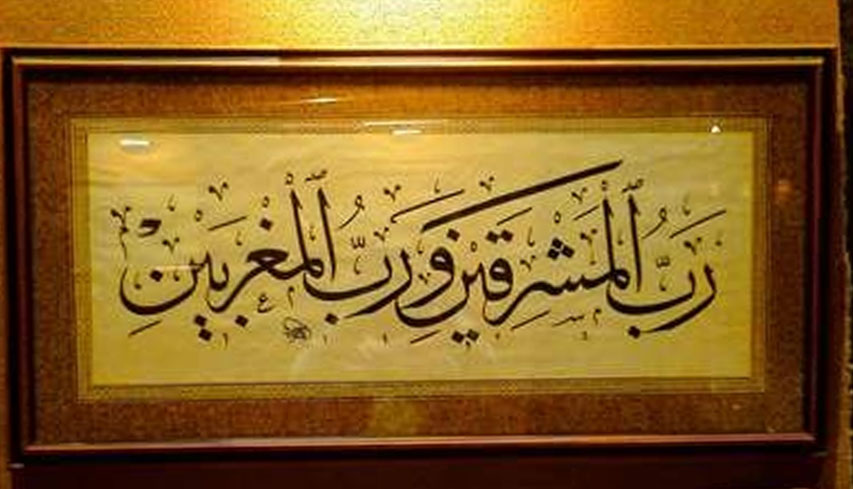 رَبُّ الْمَشْرِقَيْنِ وَرَبُّ الْمَغْرِبَيْنِ